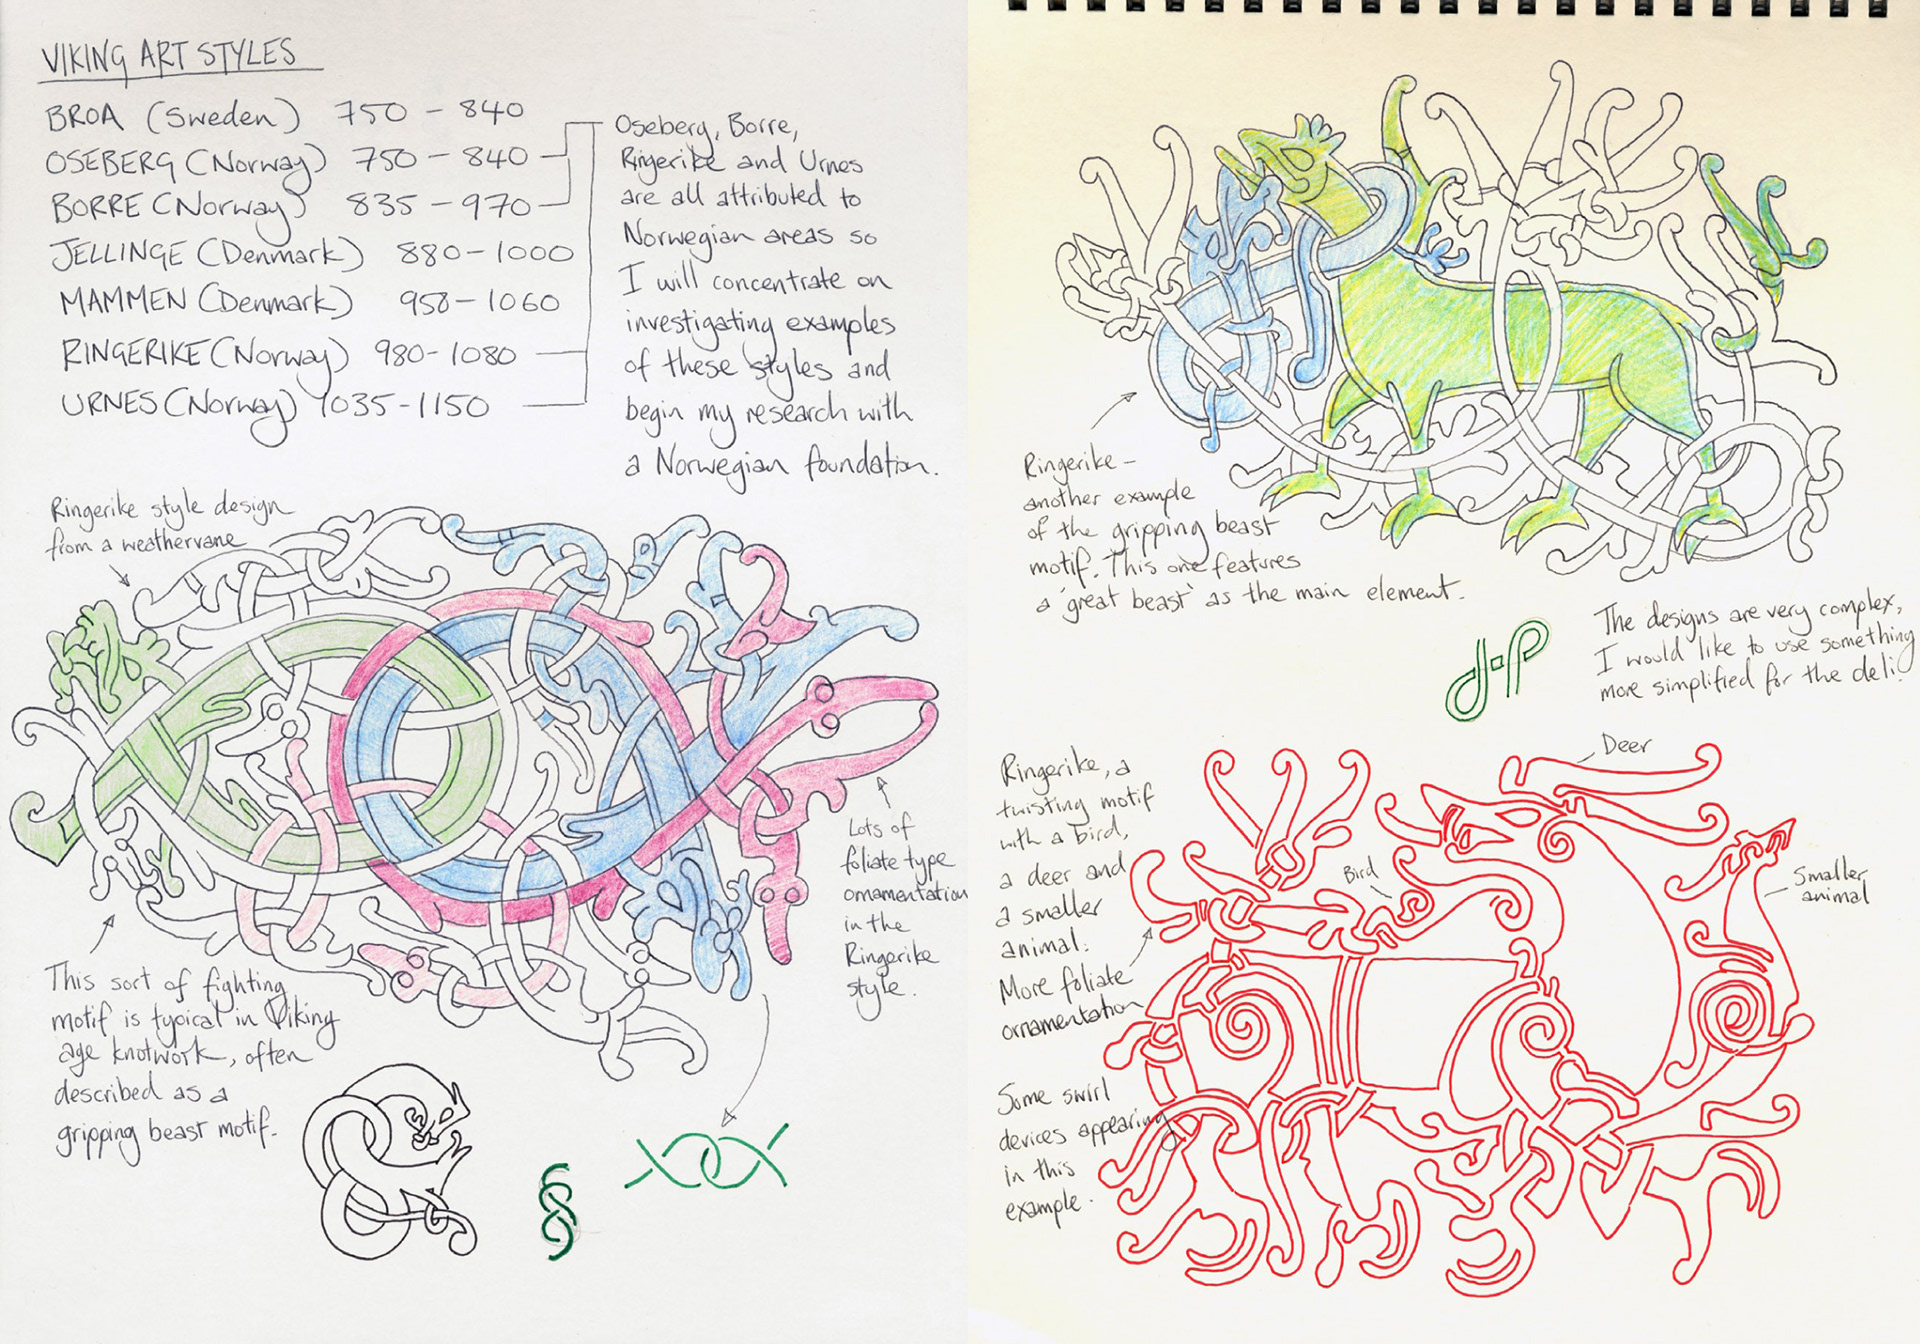 VIKING ART STYLES
BROA (Sweden) 750 - 840
OSEBERG (Norway) 750 - 840
BORRE (Norway) 835 - 970
JELLINGE (Denmark) 880 - 1000
MAMMEN (Denmark) 950 - 1060
RINGERIKE (Norway) 980 - 1080
URNES (Norway) 1035 - 1150
Oseberg, Borre,
Ringerike and Urnes
are all attributed to
Norwegian areas so
I will concentrate on
investigating examples
of these styles and
begin my research with
a Norwegian foundation.
Ringerike style design
from a weathervane
Lots of
foliate type
ornamentation
in the
Ringerike
style.
This sort of fighting
motif is typical in Viking
age knotwork, often
described as a
gripping beast motif.
Ringerike -
another example
of the gripping beast
motif. This one features
a 'great beast' as the main element.
The designs are very complex,
I would like to use something
more simplified for the deli.
Ringerike, a
twisting motif
with a bird,
a deer and
a smaller
animal.
More foliate
ornamentation
Deer
Bird
Smaller
animal
Some swirl
devices appearing
in this
example.